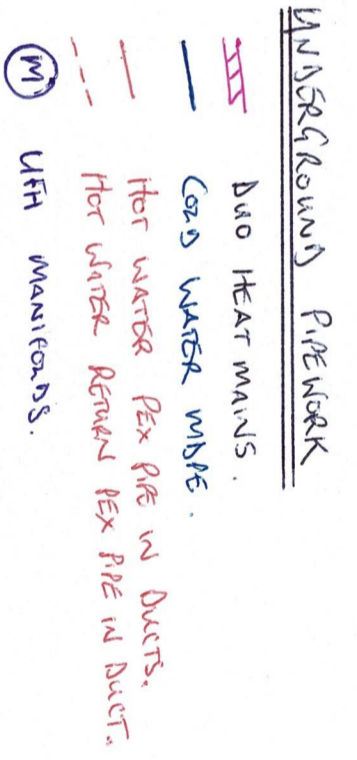 UNDERGROUND PIPEWORK
DUO HEAT MAINS.
COLD WATER MDPE.
HOT WATER PEX PIPE IN DUCTS.
HOT WATER RETURN PEX PIPE IN DUCT.
M UFH MANIFOLDS.